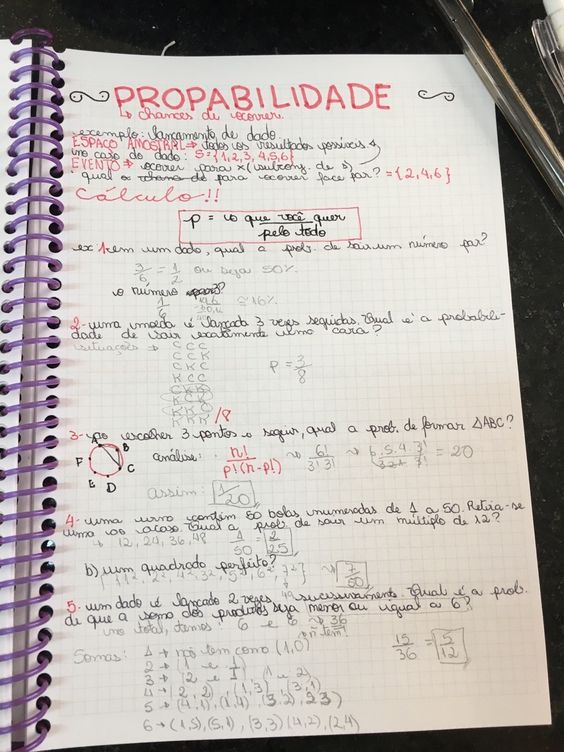 PROPABILIDADE
↳ chances de ocorrer.
exemplo: lançamento de dado.
ESPAÇO AMOSTRAL → todos os resultados possíveis
no caso do dado: S = {1,2,3,4,5,6}
EVENTO → ocorrer para x (subconj. de s)
qual a chance de para ocorrer face par? = {2,4,6}
Cálculo!!
p = o que você quer
pelo todo
ex 1: em um dado, qual a prob. de sair um número par?
3/6 = 1/2 ou seja 50%.
o número 3?
1/6 ≅ 16%
2- uma moeda é lançada 3 vezes seguidas. Qual é a probabili-
dade de sair exatamente uma cara?
situações → C C C
C C K
C K C
K C C
C K K
K C K
K K C
K K K /8
P = 3/8
3- ao escolher 3 pontos a seguir, qual a prob. de formar ΔABC?
A B C D E F
análise: n!/p!(n-p!) → 6!/3!3! → 6.5.4.3!/3.2.1 3! = 20
assim: 1/20
4- uma urna contém 50 bolas numeradas de 1 a 50. Retira-se
uma ao acaso. Qual a prob. de sair um múltiplo de 12?
↳ 12, 24, 36, 48 4/50 = 2/25
b) um quadrado perfeito?
{1², 2², 4², 3², 5², 6², 7²} → 7/50
49
5- um dado é lançado 2 vezes, sucessivamente. Qual é a prob.
de que a soma dos produtos seja menor ou igual a 6?
no total, temos: 6 e 6 → 36
n tem!
15/36 = 5/12
Somas: 1 → não tem como (1,0)
2 → (1 e 1)
3 → (2 e 1), (1 e 2)
4 → (2, 2), (1,3), (3,1)
5 → (4,1), (1,4), (3,2), 23)
6 → (1,5), (5,1), (3,3) (4,2), (2,4)